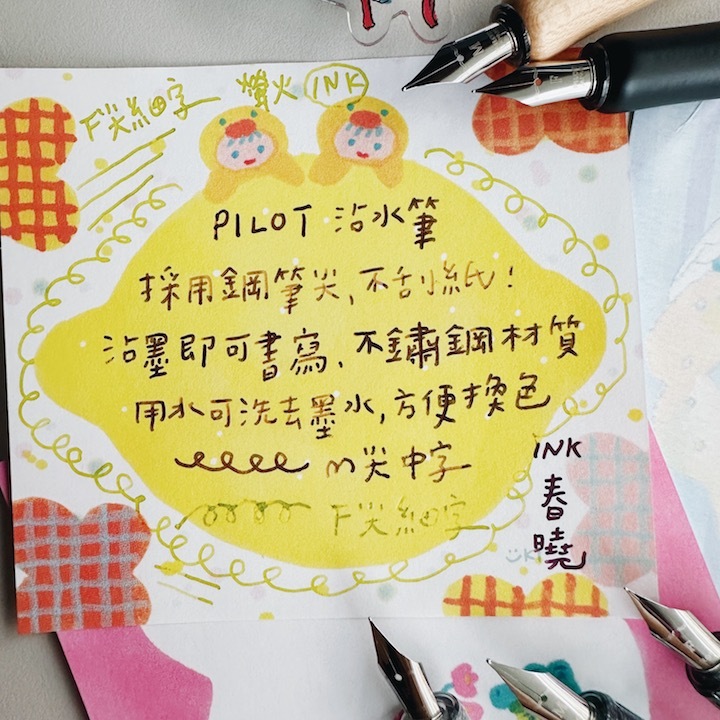 F尖細字 螢火 INK
PILOT 沾水筆
採用鋼筆尖,不刮紙!
沾墨即可書寫、不鏽鋼材質
用水可洗去墨水,方便換色
m尖中字
F尖細字
INK
春
曉